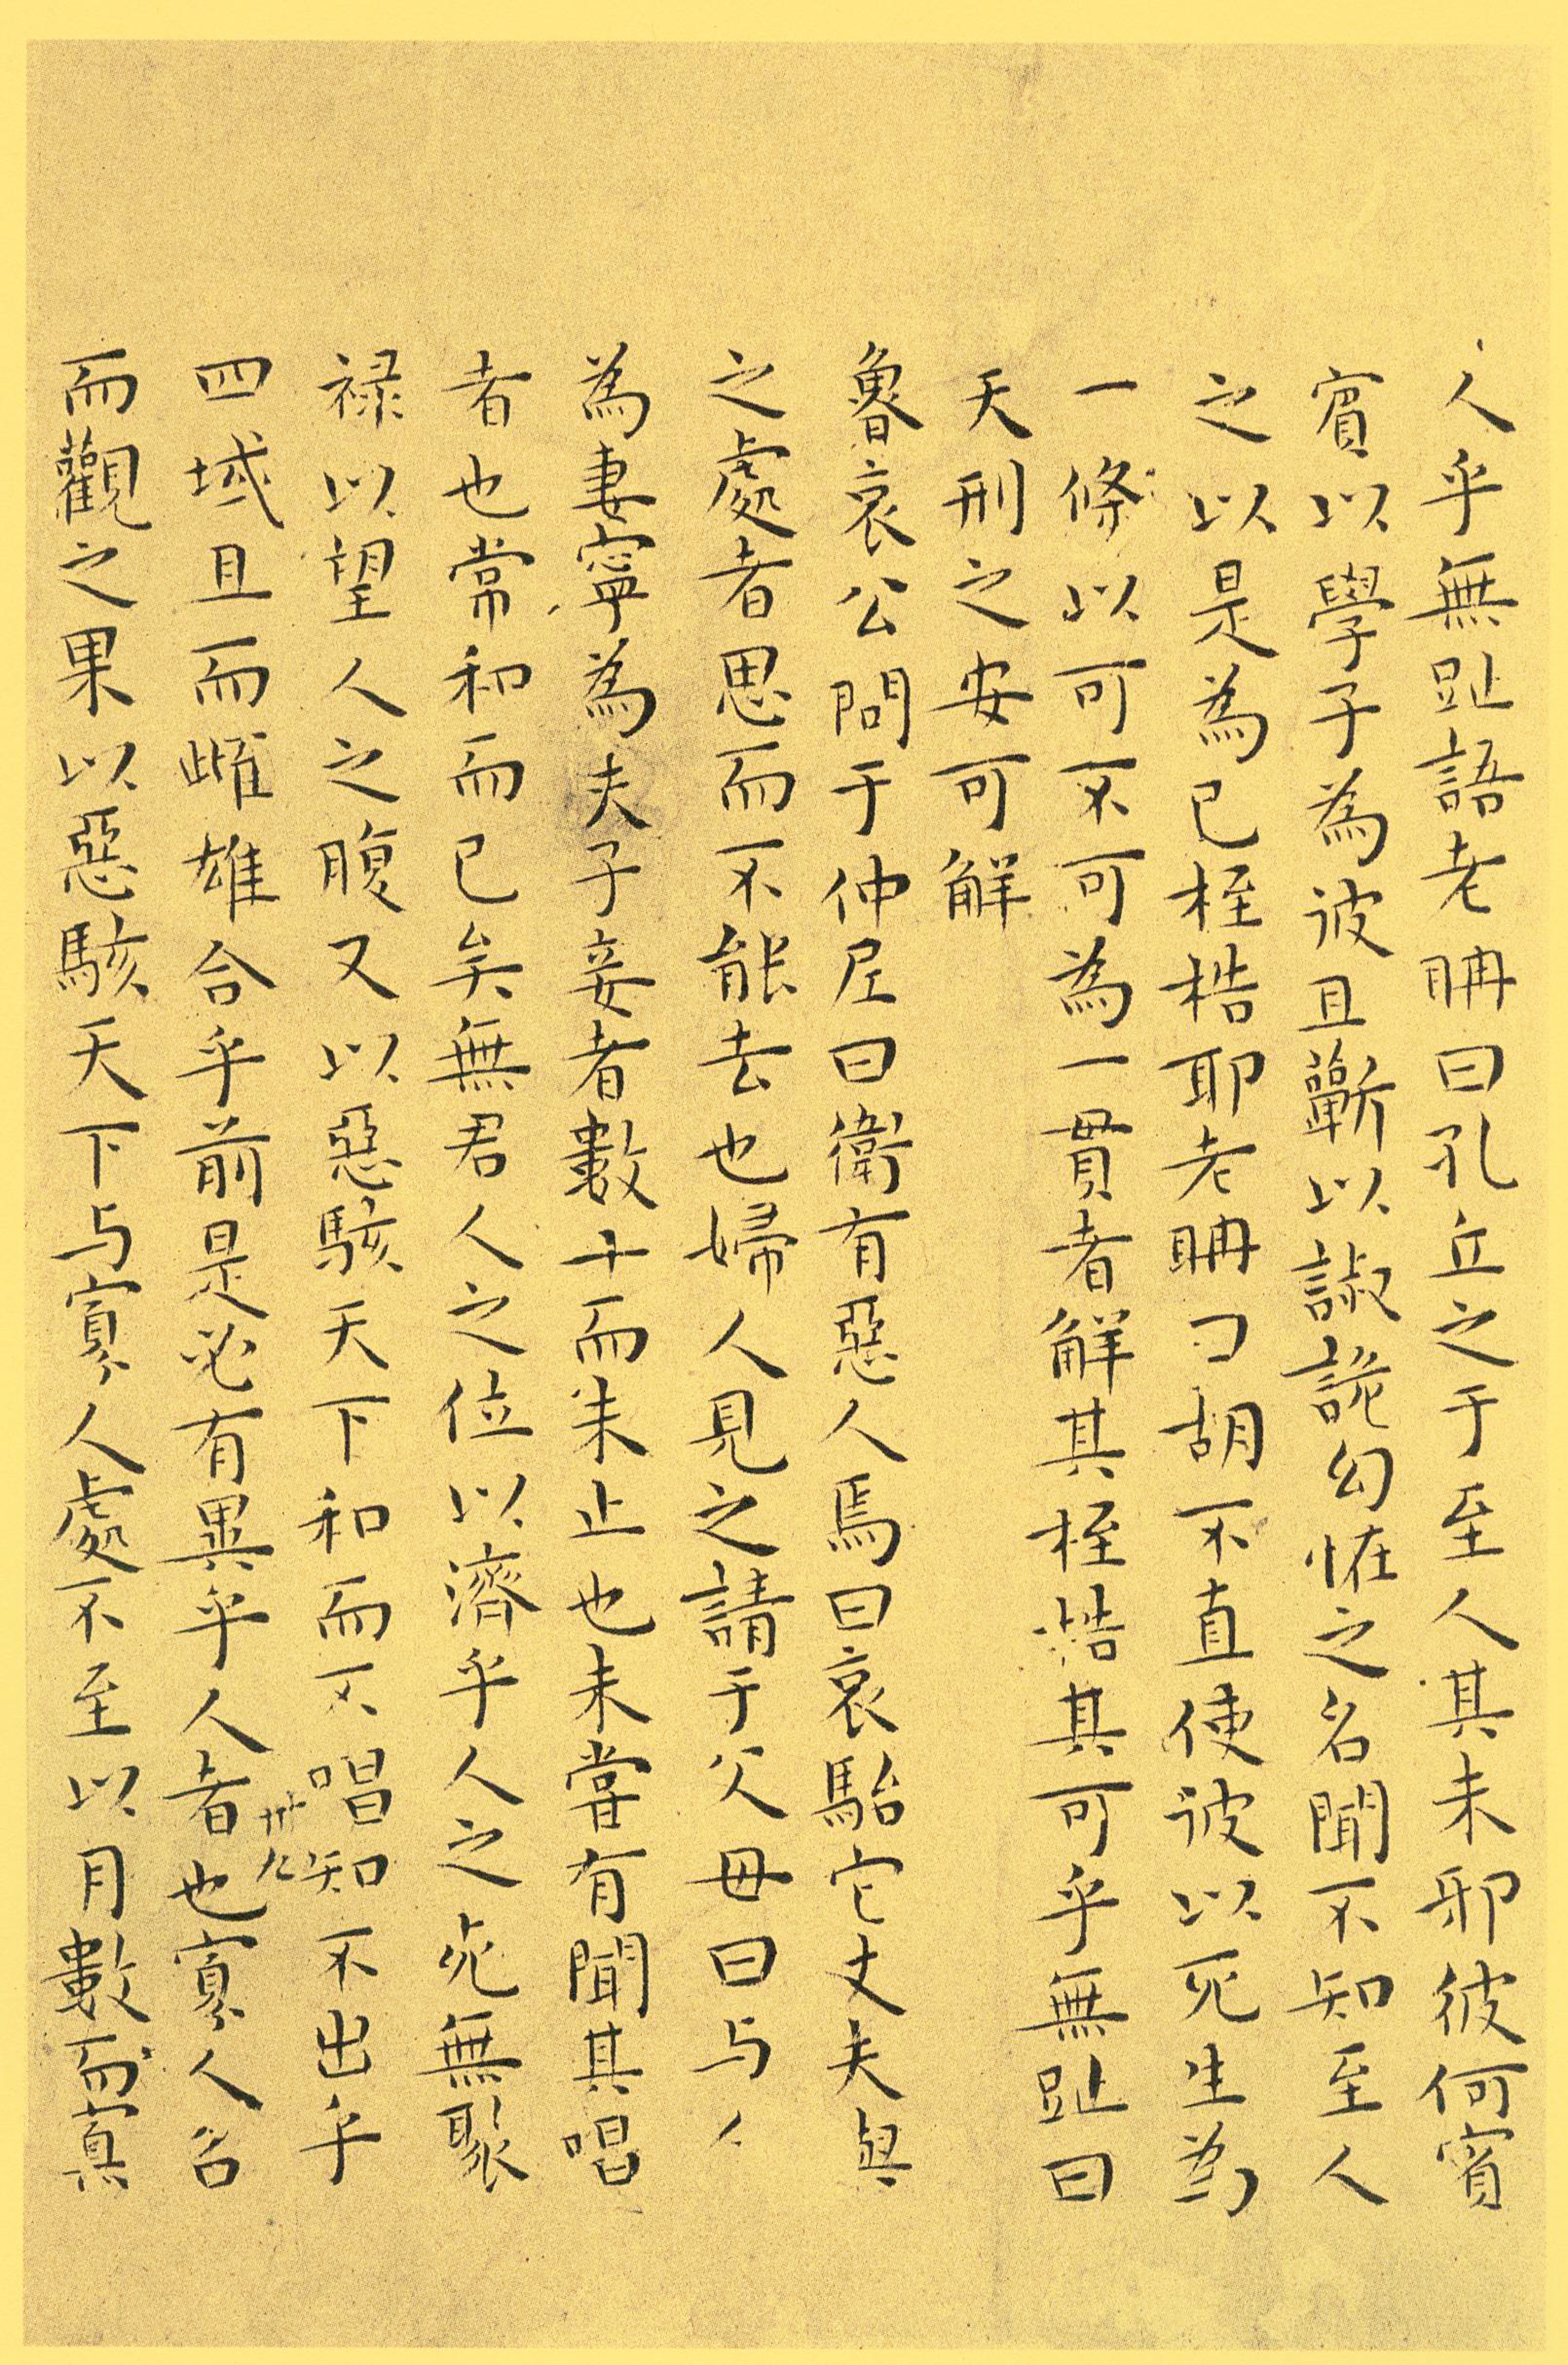 人乎無趾語老聃曰孔丘之于至人其未邪彼何賓
賓以學子為彼且蘄以諔詭幻怪之名聞不知至人
之以是為已桎梏耶老聃曰胡不直使彼以死生為
一條以可不可為一貫者解其桎梏其可乎無趾曰
天刑之安可解
魯哀公問于仲尼曰衛有惡人焉曰哀駘它丈夫與
之處者思而不能去也婦人見之請于父母曰与人
為妻寧為夫子妾者數十而未止也未嘗有聞其唱
者也常和而已矣無君人之位以濟乎人之死無聚
祿以望人之腹又以惡駭天下和而不唱知不出乎
四域且而雌雄合乎前是必有異乎人者也寡人召
而觀之果以惡駭天下与寡人處不至以月數而寡